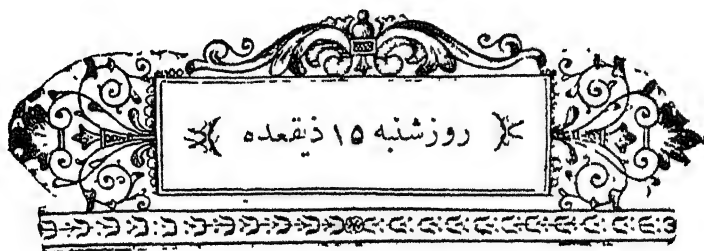 روز شنبه ۱۵ ذیقعده